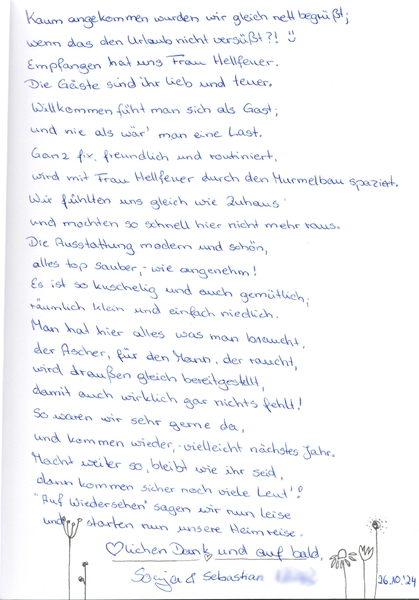 Kaum angekommen wurden wir gleich nett begrüßt;
wenn das den Urlaub nicht versüßt?! ☺
Empfangen hat uns Frau Hellfeuer.
Die Gäste sind ihr lieb und teuer.
Willkommen fühlt man sich als Gast;
und nie als wär' man eine Last.
Ganz fix, freundlich und routiniert,
wird mit Frau Hellfeuer durch den Murmelbau spaziert.
Wir fühlten uns gleich wie Zuhaus'
und mochten so schnell hier nicht mehr raus.
Die Ausstattung modern und schön,
alles top sauber,- wie angenehm!
Es ist so kuschelig und auch gemütlich;
räumlich klein und einfach niedlich.
Man hat hier alles was man braucht,
der Ascher, für den Mann, der raucht,
wird draußen gleich bereitgestellt,
damit auch wirklich gar nichts fehlt!
So waren wir sehr gerne da,
und kommen wieder,- vielleicht nächstes Jahr.
Macht weiter so, bleibt wie ihr seid,
dann kommen sicher noch viele Leut'!
"Auf Wiedersehen" sagen wir nun leise
und starten nun unsere Heimreise.
♡lichen Dank und auf bald,
Sonja & Sebastian
26.10.'24